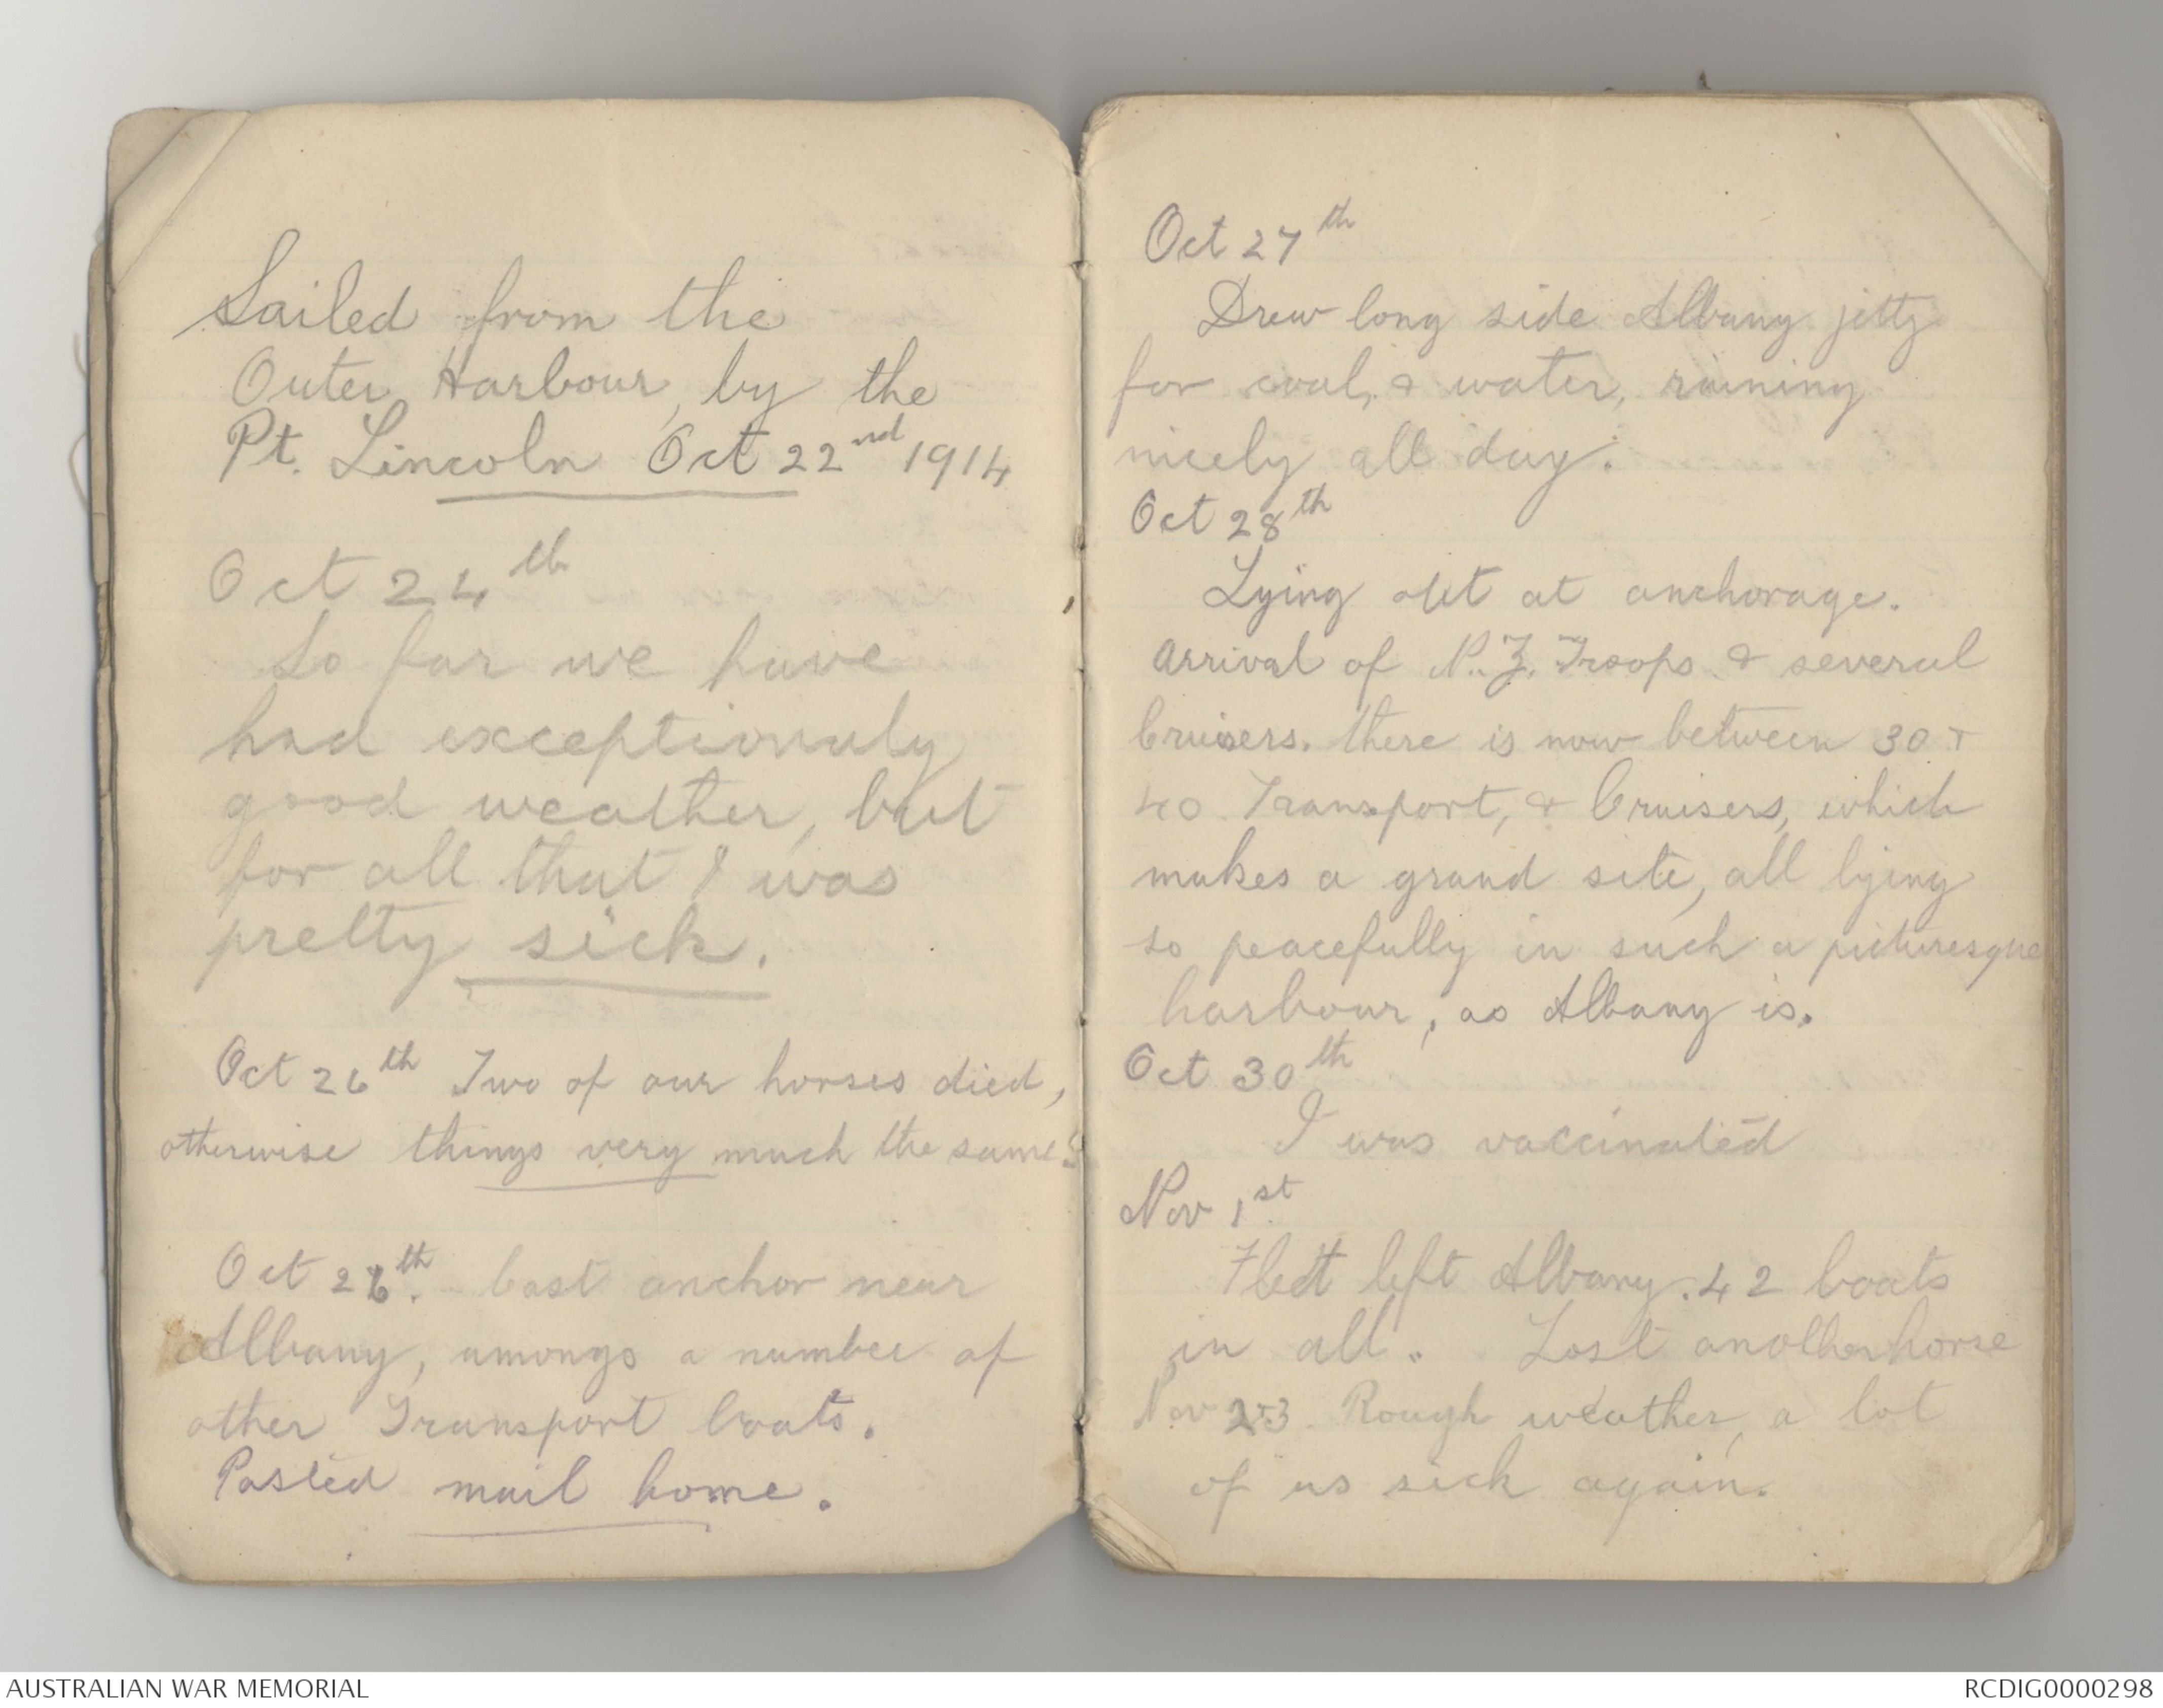 Sailed from the
Outer Harbour, by the
Pt. Lincoln Oct 22nd 1914
Oct 24th
So far we have
had exceptionaly
good weather, but
for all that I was
pretty sick.
Oct 26th Two of our horses died,
otherwise things very much the same.
Oct 26th. Cast anchor near
Albany, amongs a number of
other Transport boats.
Posted mail home.
Oct 27th
Drew long side Albany jetty
for coal, & water, raining
nicely all day.
Oct 28th
Lying out at anchorage.
Arrival of N.Z. Troops & several
Cruisers. there is now between 30 &
40 Transport, & Cruisers, which
makes a grand site, all lying
so peacefully in such a picturesque
harbour, as Albany is.
Oct 30th
I was vaccinated
Nov 1st
Fleet left Albany. 42 boats
in all. Lost another horse
Nov 2&3. Rough weather, a lot
of us sick again.
AUSTRALIAN WAR MEMORIAL
RCDIG0000298